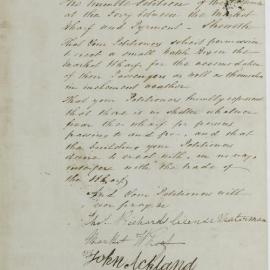 The humble Petition of the
at the Ferry between the Market
Wharf and Pyrmont - Sheweth
That Your Petitioners solicit permission
to erect a small Watch Box on the
Market Wharf for the accommodation
of their Passengers as well as themselves
in inclement weather
That your Petitioners humbly represent
that there is no shelter whatever
near the wharf for persons
passing to and fro, and that
the building your Petitioners
desire to erect will in no way
interfere with the trade of
the Wharf
And Your Petitioners will
ever pray
Thos. Richards Licensed Waterman
Market Wharf
John Ackland